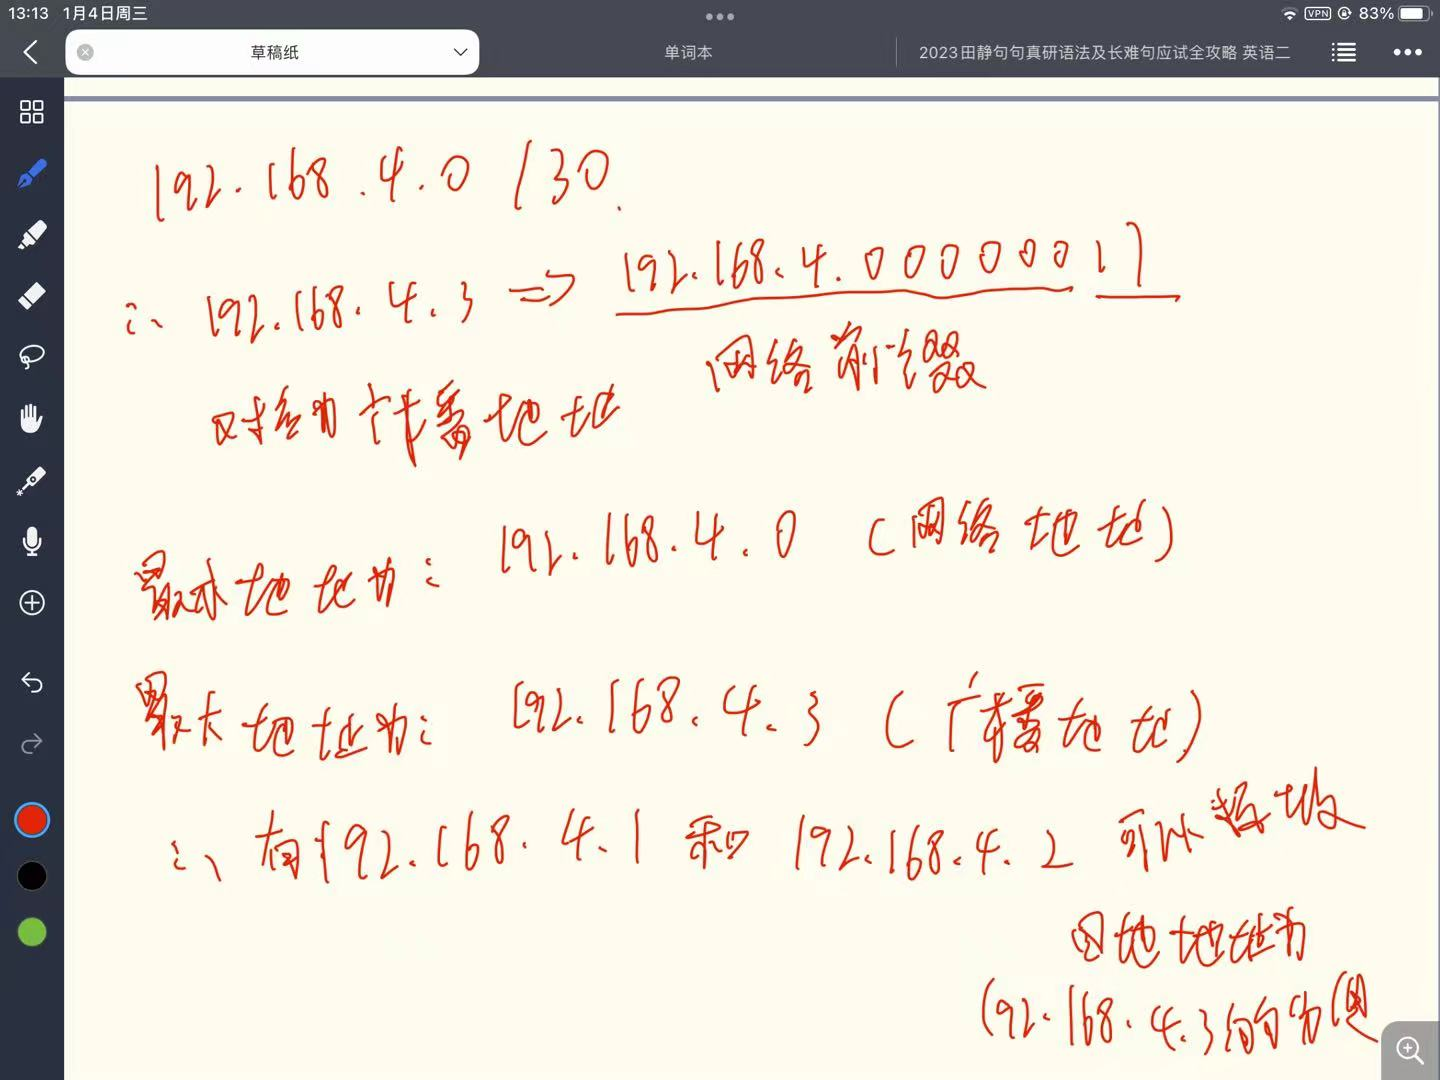 13:13 1月4日周三
VPN 83%
草稿纸 单词本 2023田静句句真研语法及长难句应试全攻略 英语二
192.168.4.0 /30.
∴ 192.168.4.3 => 192.168.4.00000011
网络前缀
对应为广播地址
最小地址为: 192.168.4.0 (网络地址)
最大地址为: 192.168.4.3 (广播地址)
∴ 有192.168.4.1 和 192.168.4.2 可以接收
目地地址为
192.168.4.3的分组